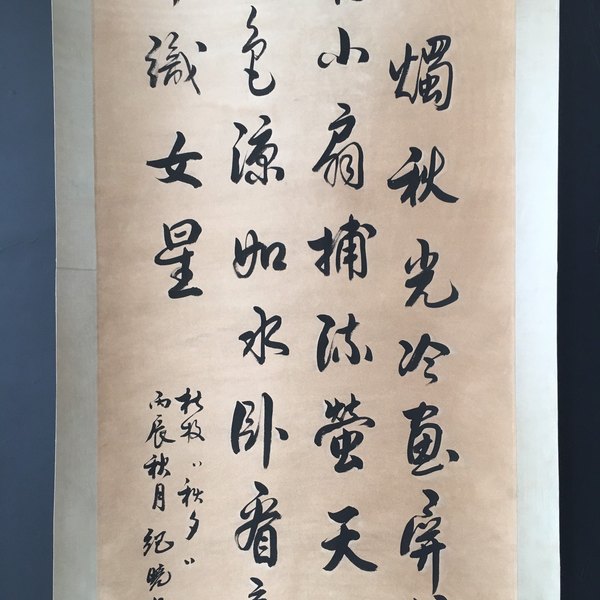 燭秋光冷畫屏
小扇捕流螢天
色涼如水卧看
織女星
杜牧“秋夕”
丙辰秋月 紀曉